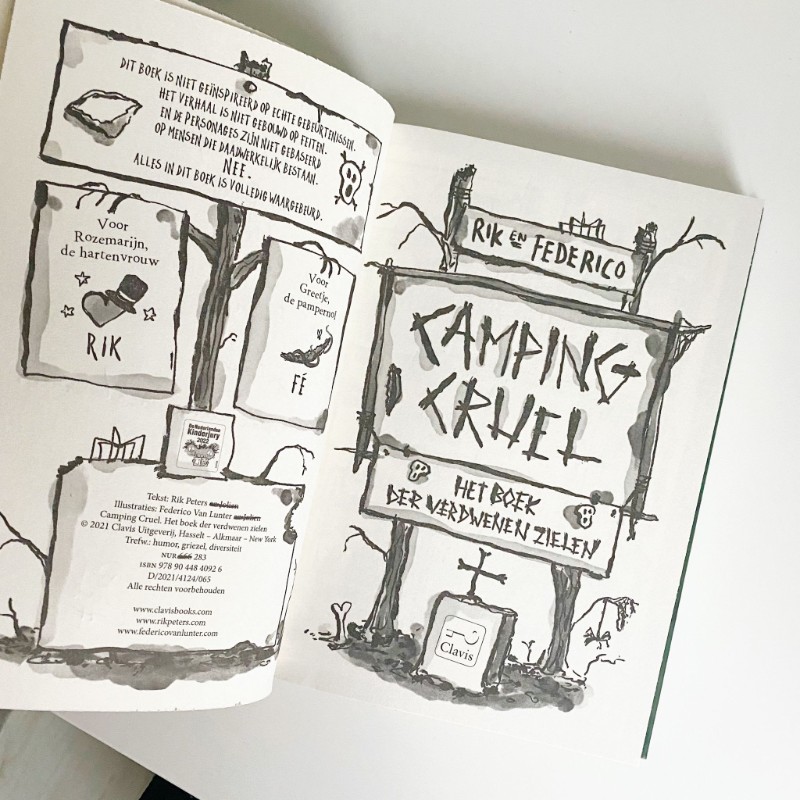 DIT BOEK IS NIET GEÏNSPIREERD OP ECHTE GEBEURTENISSEN.
HET VERHAAL IS NIET GEBOUWD OP FEITEN.
EN DE PERSONAGES ZIJN NIET GEBASEERD
OP MENSEN DIE DAADWERKELIJK BESTAAN.
NEE.
ALLES IN DIT BOEK IS VOLLEDIG WAARGEBEURD.
Voor
Rozemarijn,
de hartenvrouw
RIK
Voor
Greetje,
de pamperno!
FÉ
De Nederlandse
Kinderjury
2022
Tekst: Rik Peters
Illustraties: Federico Van Lunter
Camping Cruel. Het boek der verdwenen zielen
© 2021 Clavis Uitgeverij, Hasselt – Alkmaar – New York
Trefw.: humor, griezel, diversiteit
NUR 666 283
ISBN 978 90 448 4092 6
D/2021/4124/065
Alle rechten voorbehouden
www.clavisbooks.com
www.rikpeters.com
www.federicovanlunter.com
RIK EN FEDERICO
CAMPING
CRUEL
HET BOEK
DER VERDWENEN ZIELEN
Clavis